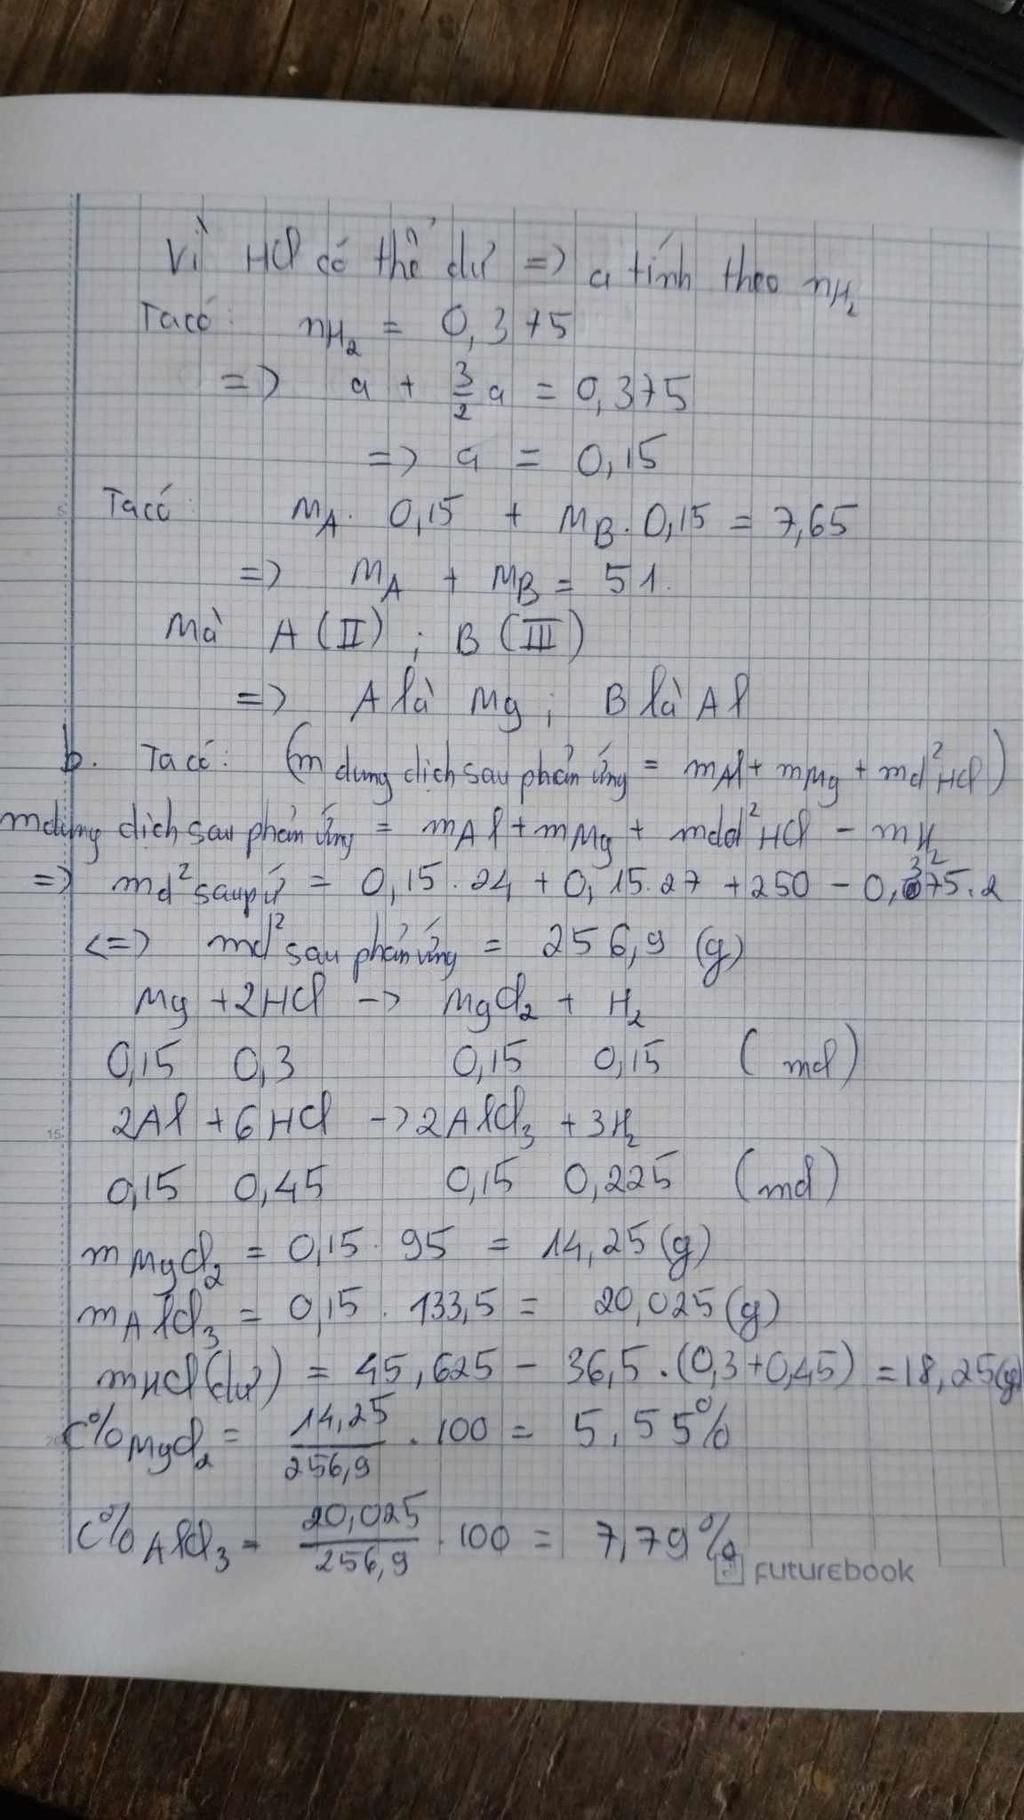 Vì HCl có thể dư => a tính theo nH₂
Ta có: nH₂ = 0,375
=> a + 3/2 a = 0,375
=> a = 0,15
Ta có: MA. 0,15 + MB. 0,15 = 7,65
=> MA + MB = 51.
Mà A (II) ; B (III)
=> A là Mg ; B là Al
b. Ta có: (m dung dịch sau phản ứng = mAl + mMg + md²HCl)
mdung dịch sau phản ứng = mAl + mMg + mdd²HCl - mH₂
=> md² sau pứ = 0,15.24 + 0,15.27 + 250 - 0,375.2
<=> md² sau phản ứng = 256,9 (g)
Mg + 2HCl -> MgCl₂ + H₂
0,15 0,3 0,15 0,15 (mol)
2Al + 6HCl -> 2AlCl₃ + 3H₂
0,15 0,45 0,15 0,225 (mol)
mMgCl₂ = 0,15. 95 = 14,25 (g)
mAlCl₃ = 0,15. 133,5 = 20,025 (g)
mHCl (dư) = 45,625 - 36,5.(0,3+0,45) = 18,25 (g)
C%MgCl₂ = 14,25/256,9 . 100 = 5,55%
C%AlCl₃ = 20,025/256,9 . 100 = 7,79%
FUTUREBOOK